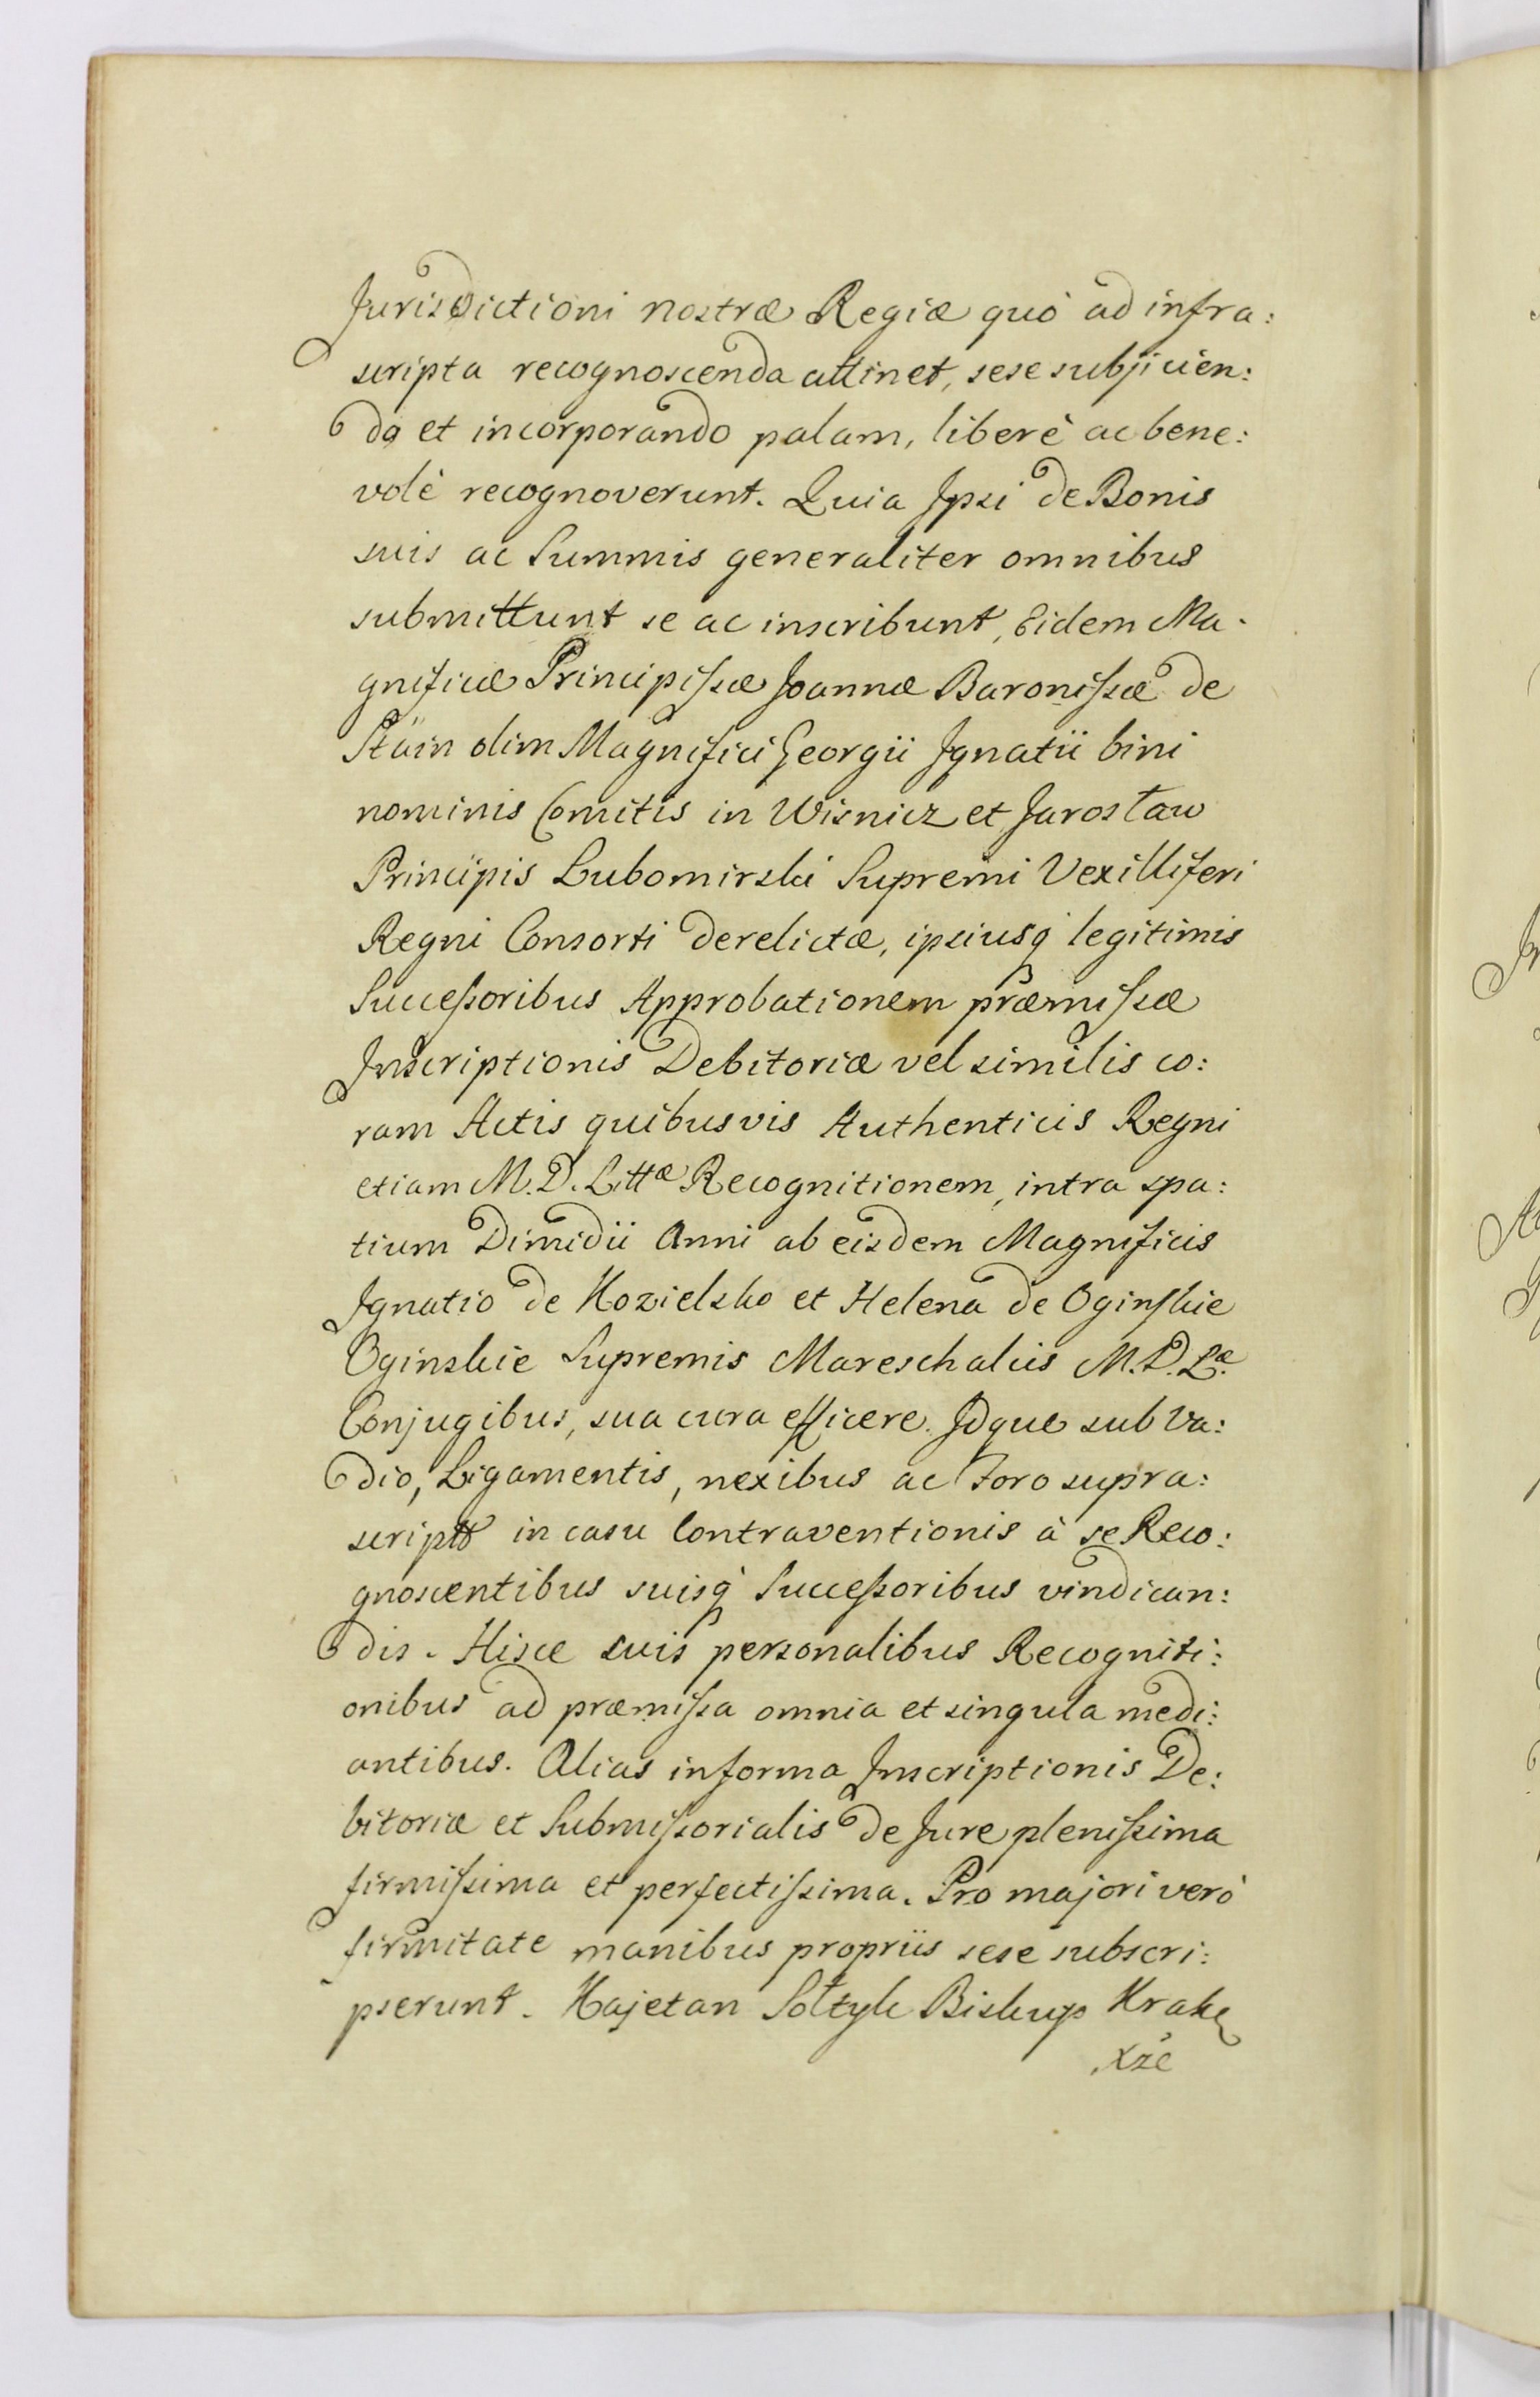 Jurisdictioni nostræ Regiæ quò ad infra:
scripta recognoscenda attinet, sese subjicien:
do et incorporando palam, liberè ac bene:
volè recognoverunt. Quia Ipsi de Bonis
suis ac Summis generaliter omnibus
submittunt se ac inscribunt, Eidem Ma-
gnificæ Principissæ Joannæ Baronissæ de
Stäin olim Magnifici Georgii Ignatii bini
nominis Comitis in Wisnicz et Jarosław
Principis Lubomirski Supremi Vexilliferi
Regni Consorti derelictæ, ipsiusq́ legitimis
Successoribus Approbationem præmissæ
Inscriptionis Debitoriæ vel similis co:
ram Actis quibusvis Authenticis Regni
etiam M. D. Littæ Recognitionem, intra spa:
tium Dimidii Anni ab eisdem Magnificis
Ignatio de Kozielsko et Helena de Oginskie
Oginskie Supremis Mareschalcis M. D. Læ.
Conjugibus, sua cura efficere. Idque sub Va:
dio, Ligamentis, nexibus ac Foro supra:
scripto in casu Contraventionis à se Reco:
gnoscentibus suisq́ Successoribus vindican:
dis. Hisce suis personalibus Recogniti:
onibus ad præmissa omnia et singula medi:
antibus. Alias in forma Inscriptionis De:
bitoriæ et Submissorialis de Jure plenissima
firmissima et perfectissima. Pro majori verò
firmitate manibus propriis sese subscri:
pserunt. Kajetan Sołtyk Biskup Krak
Xże